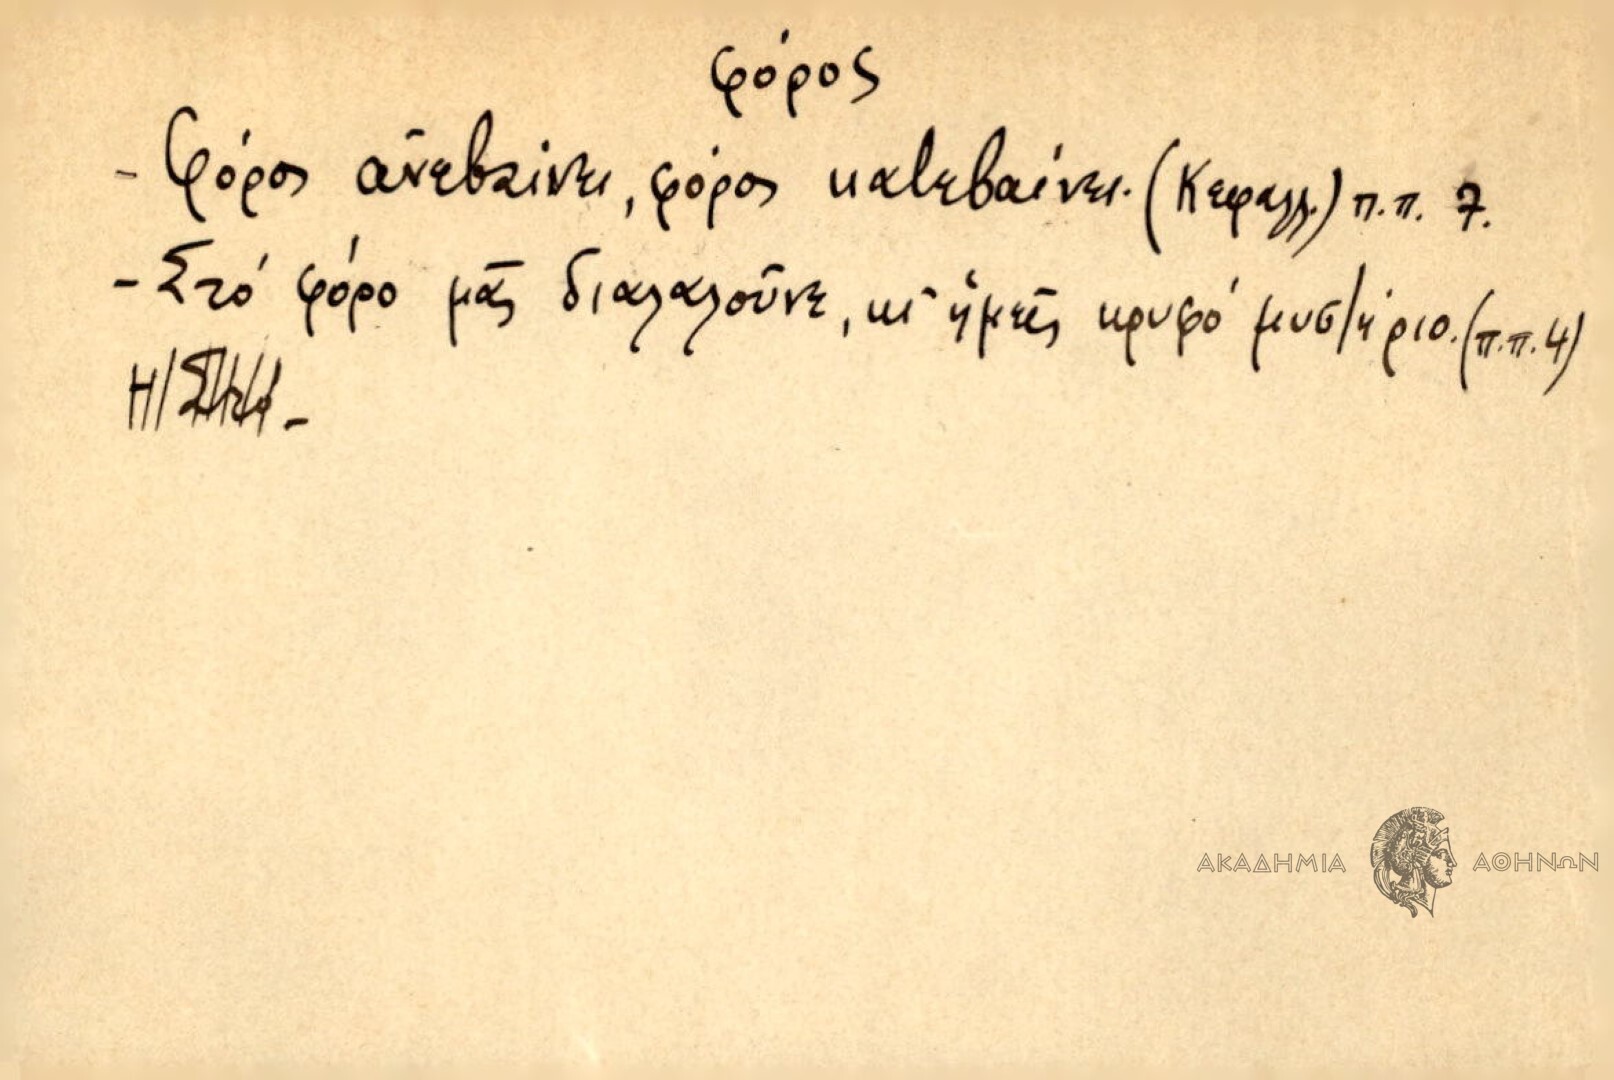 φόρος
- Φόρος ἀνεβαίνει, φόρος κατεβαίνει. (Κεφαλλ.) π.π. 7.
- Στό φόρο μᾶς διαλαλοῦνε, κι ἡμεῖς κρυφό μυστήριο. (π.π. 4)
ΑΚΑΔΗΜΙΑ ΑΘΗΝΩΝ